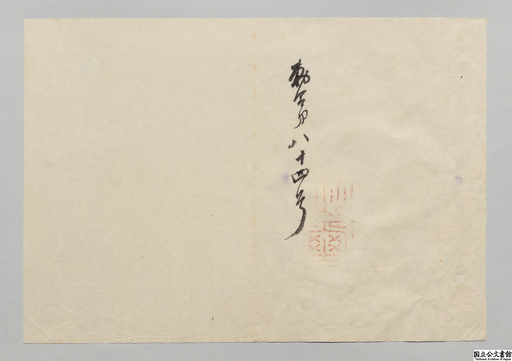 勅令第八十四号
国立公文書館
National Archives of Japan